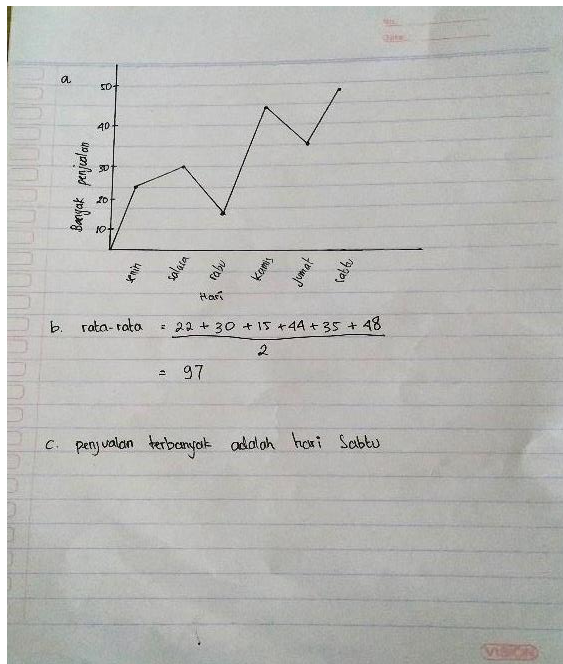 a
50
40
30
20
10
Banyak penjualan
Senin Selasa Rabu Kamis Jumat Sabtu
Hari
b. rata-rata = 22 + 30 + 15 + 44 + 35 + 48
2
= 97
c. penjualan terbanyak adalah hari Sabtu
VISION